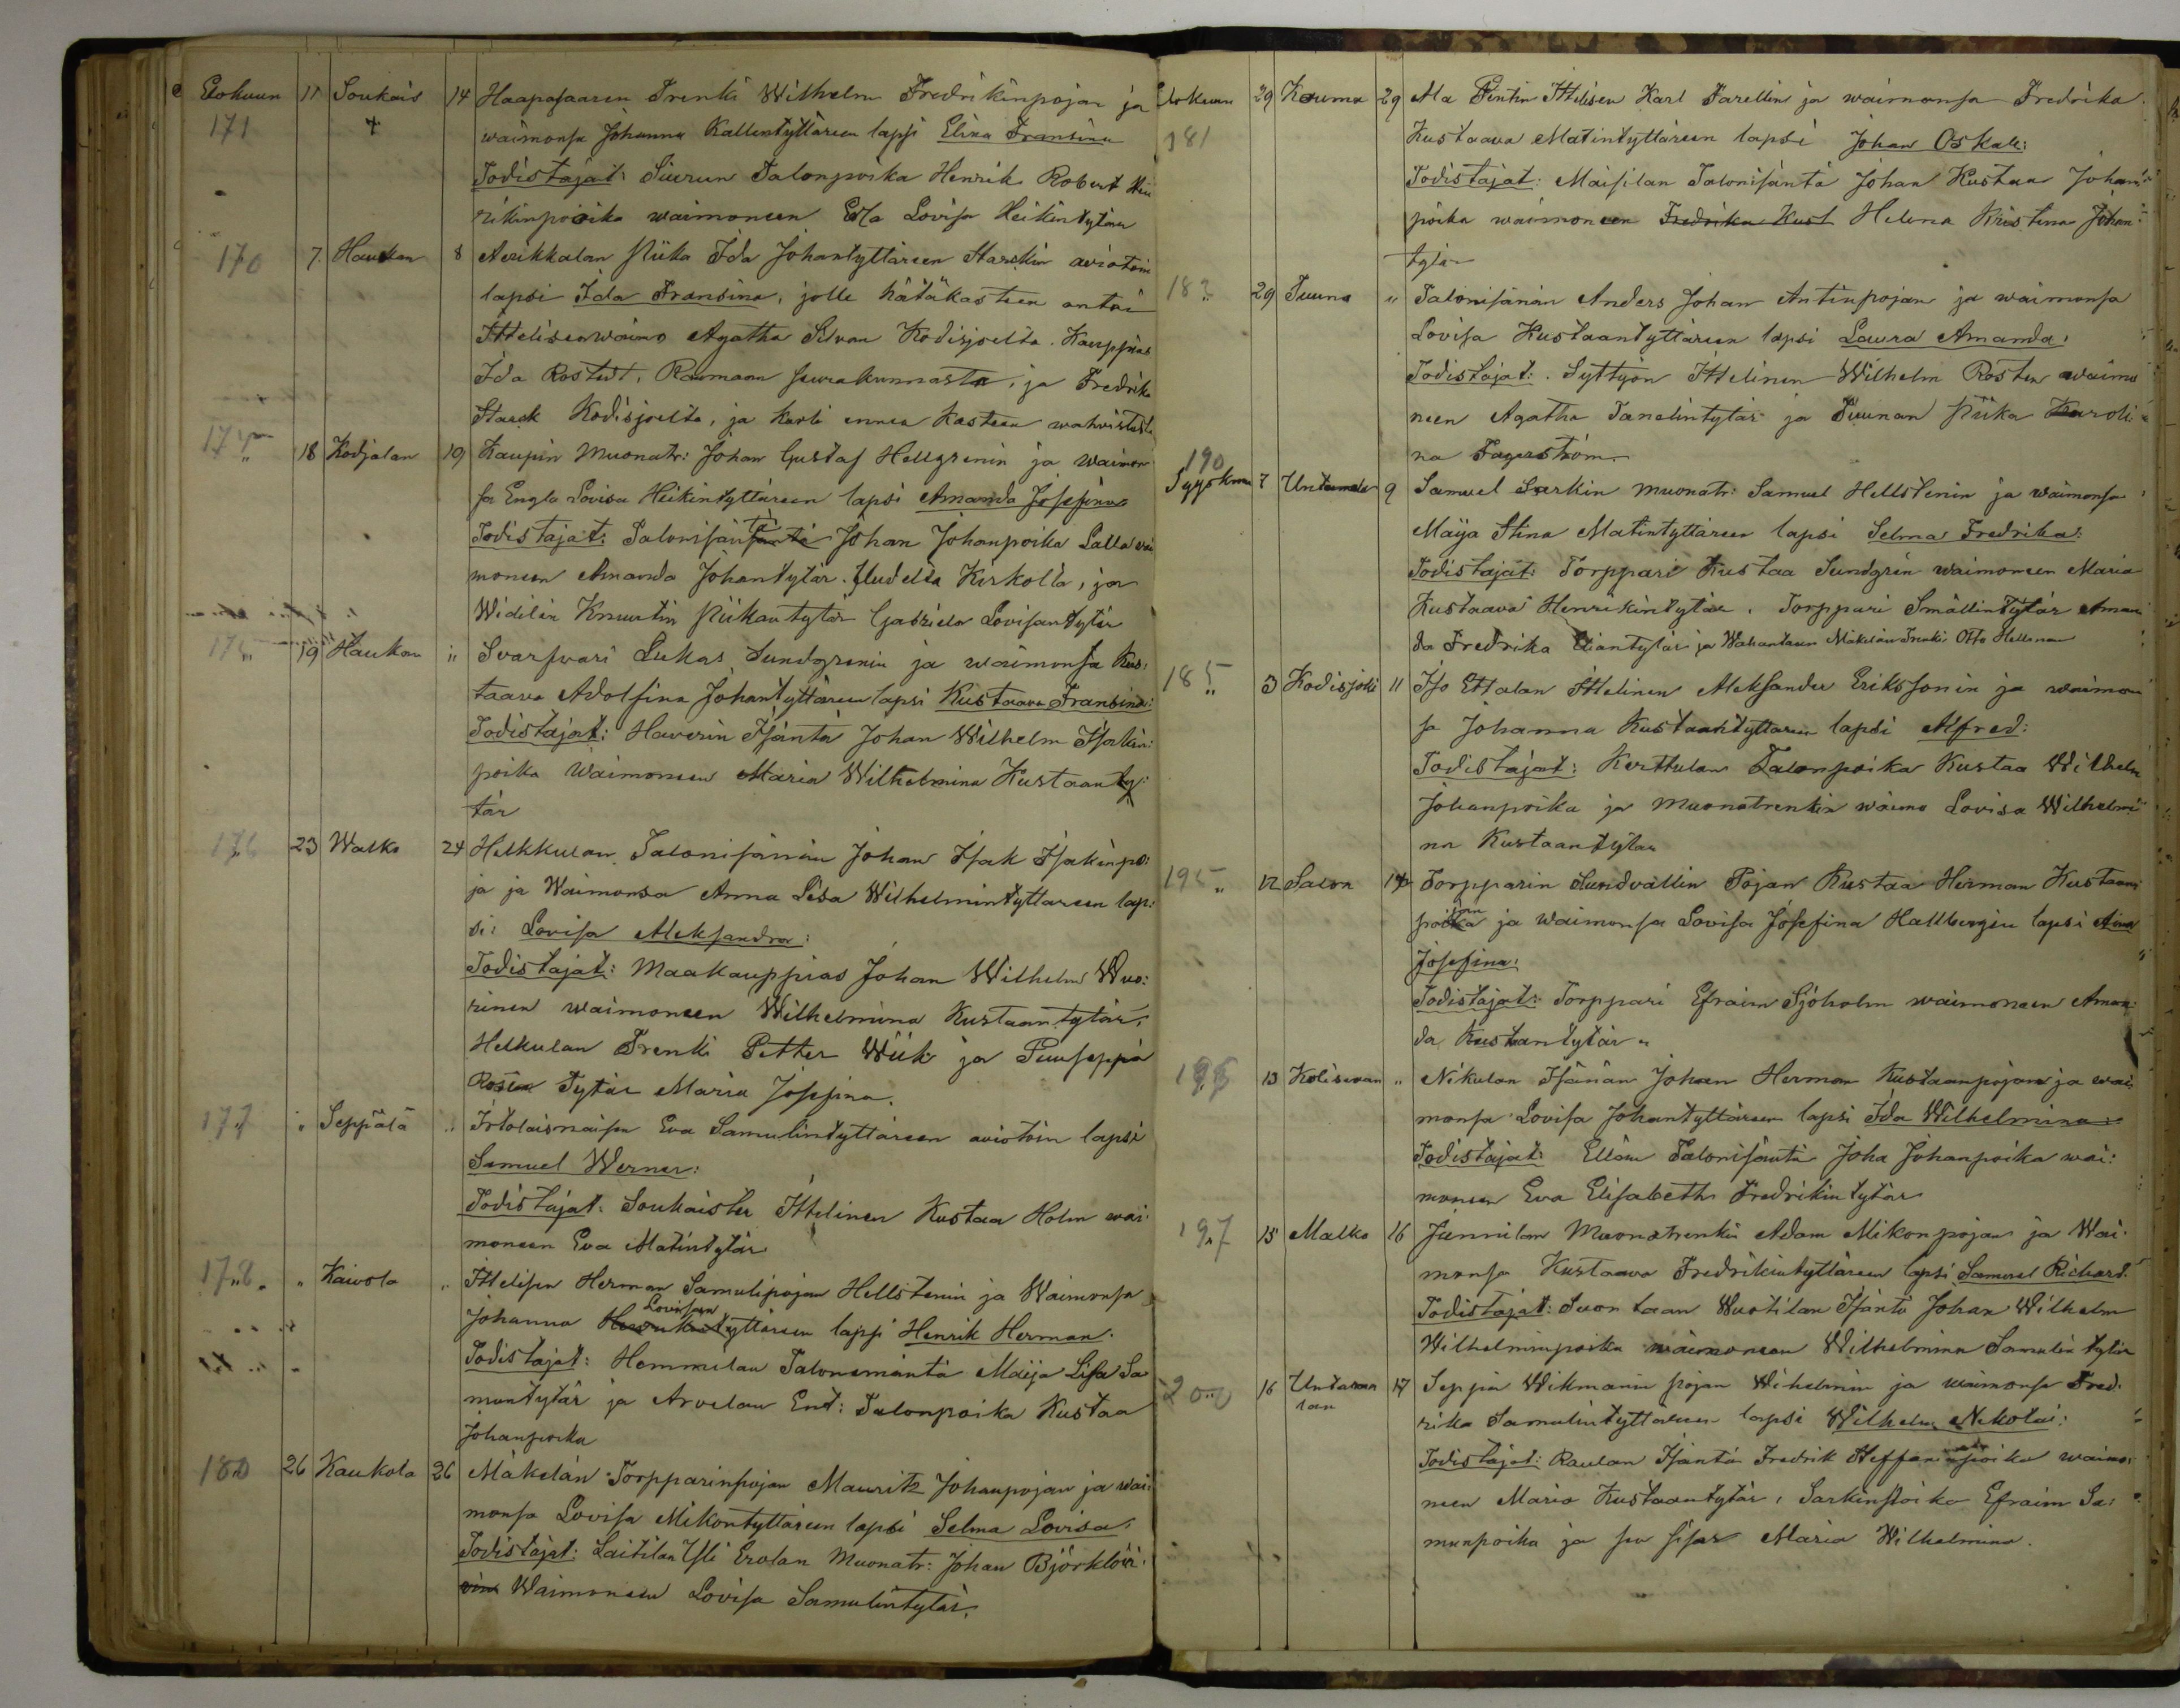 Elokuun 11 Soukais 14 Haapasaaren Trenki Wilhelm Fredrikinpojan ja
171 + waimonsa Johanna Kallentyttären lapsi Elina Fransina
Todistajat: Siurun Talonpoika Henrik Robert Hen
rikinpoika waimoneen Eva Lovisa Heikintytär
170 7 Haukan 8 Aerikkalan Piika Ida Johantyttären Starckin aviotoin
lapsi Ida Fransina, jolle hätäkasteen antoi
Ittelisenwaimo Agatha Silvan Kodisjoelta. Kauppias
Ida Rostedt, Rauman seurakunnasta, ja Fredrika
Starck Kodisjoelta, ja
18 Kodjalan 19 Kaupin Muonatr: Johan Gustaf Hellgrenin ja waimon
sa Engla Lovisa Heikintyttären lapsi Amanda Josefina
Todistajat: Talonisäntä Johan Johanpoika Salla wai
moneen Amanda Johantytär. Kirkolta, ja
Widilän Knuutin Piikantytär Gabriela Lovisantytär
175 19 Haukan " Svarfvari Lukas Sundgrenin ja waimonsa Kus:
taava Adolfina Johantyttären lapsi Kustaava Fransina:
Todistajat: Haverin Isäntä Johan Wilhelm Isakin:
poika Waimoneen Maria Wilhelmina Kustaanty:
tär
176 23 Walko 24 Helkkulan Talonisännän Johan Isak Isakinpo:
ja ja Waimonsa Anna Lisa Wilhelmintyttären lap:
si: Lovisa Aleksandra:
Todistajat: Maakauppias Johan Wilhelm Wuo:
rinen waimoneen Wilhelmina Kustaantytär,
Helkulan Trenki Petter Wiik ja Puuseppä
Rosen Tytär Maria Josefina.
177 " Seppälä " Irtolaisnaisen Eva Samulintyttären aviotoin lapsi
Samuel Werner:
Todistajat: Soukaisten Ittelinen Kustaa Holm wai:
moneen Eva Matintytär
178 " Kaivola " Ittelisen Herman Samulipojan Hellstenin ja Waimonsa
Lovisan
Johanna Henrikintyttären lapsi Henrik Herman.
Todistajat: Hemmilan Talonemäntä Maija Lisa Sa
muntytär ja Arvelan Ent: Talonpoika Kustaa
Johanpoika
180 26 Kaukola 26 Mäkelän Torpparinpojan Mauritz Johanpojan ja wai:
monsa Lovisa Mikontyttären lapsi Selma Lovisa,
Todistajat: Laitilan Yli Erolan Muonatr: Johan Björklöv
Waimoneen Lovisa Samulintytär.
Elokuun 29 Kauma 29 Ala Pentin Ittelisen Karl Farellin ja waimonsa Fredrika
181 Kustaava Matintyttären lapsi Johan Oskar:
Todistajat: Maisilan Talonisäntä Johan Kustaa Johan:
poika waimoneen Fredrika Kust Helena Kristina Johan:
tytär
29 Suuna " Talonisännän Anders Johan Antinpojan ja waimonsa
Lovisa Kustaantyttären lapsi Laura Amanda:
Todistajat: Syttyän Ittelinen Wilhelm Rosten waimo
neen Agatha Tanelintytär ja Suunan Piika Karoli:
na Fagerström.
190
Syyskuu 7 Untamala 9 Samuel Sarkin Muonatr: Samuel Hellstenin ja waimonsa
Maija Stina Matintyttären lapsi Selma Fredrika:
Todistajat: Torppari Kustaa Sundgrén waimoneen Maria
Kustaava Henrikintytär, Torppari Smällintytär Aman
da Fredrika Eliantytär ja Wahantaan Mäkelän Trenki Otto Hellman
185 3 Kodisjoki 11 Iso Ettalan Ittelinen Aleksander Erikssonin ja waimon
sa Johanna Kustaantyttären lapsi Alfred:
Todistajat: Kerttulan Talonpoika Kustaa Wilhelm
Johanpoika ja Muonatrenkin waimo Lovisa Wilhelmi
na Kustaantytär
195 12 Salon 14 Torpparin Sundvallin Pojan Kustaa Herman Kustaan
pojan ja waimonsa Lovisa Josefina Hallbergin lapsi Aina
Josefina:
Todistajat: Torppari Efraim Sjöholm waimoneen Aman:
da Kustantytär "
13 Kolisevan " Nikulan Isännän Johan Herman Kustaanpojan ja wai:
monsa Lovisa Johantyttären lapsi Ida Wilhelmina:
Todistajat: Ellän Talonisäntä Joha Johanpoika wai:
moneen Eva Elisabeth Fredrikintytär
197 15 Malko 16 Junnilan Muonatrenkin Adam Mikonpojan ja Wai:
monsa Kustaava Fredrikintyttären lapsi Samuel Richard.
Todistajat: Suontaan Wuotilan Isäntä Johan Wilhelm
Wilhelminpoika waimoneen Wilhelmina Samulintytär
200 16 Untamalan 17 Sepän Wikmanin pojan Wihelmin ja waimonsa Fred:
rika Samulintyttären lapsi Wilhelm Nikolai:
Todistajat: Raulan Isäntä Fredrik Steffaninpoika waimo:
neen Maria Kustaantytär, Sarkinpoika Efraim Sa:
munpoika ja sen sisar Maria Wilhelmina.